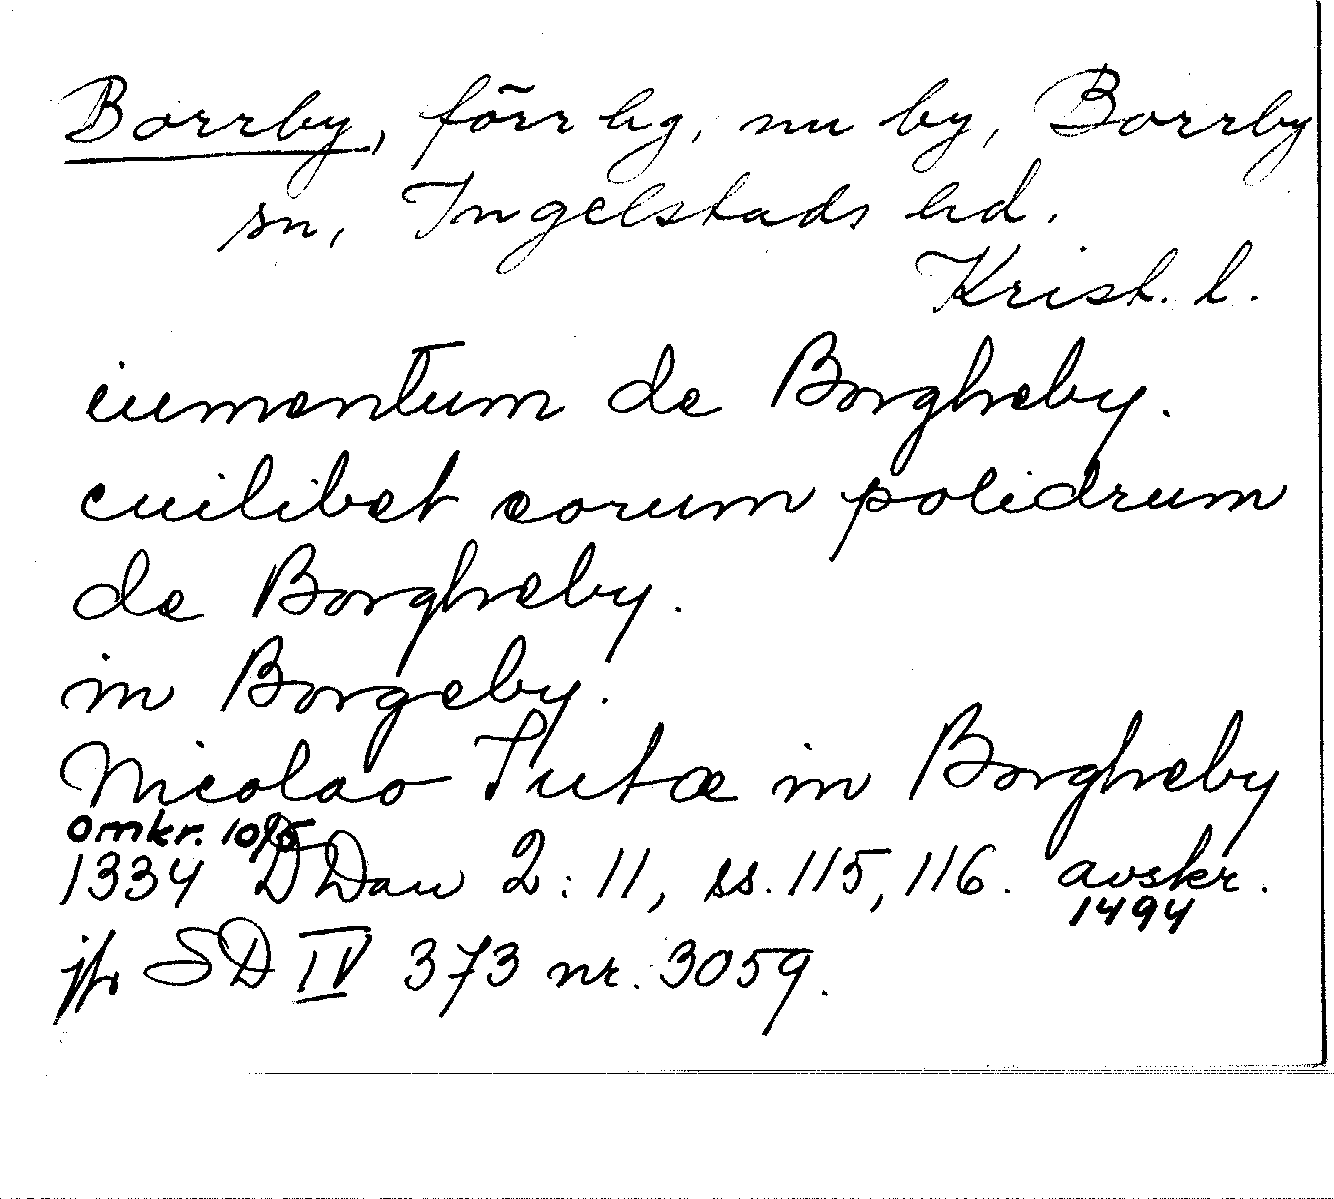 Borrby, förr hg, nu by, Borrby
sn, Ingelstads hd.
Krist. l.
iumentum de Borgheby.
cuilibet eorum polidrum
de Borgheby.
in Borgeby.
Nicolao Tutæ in Borgheby
omkr. 10/5
1334 DDan 2: 11, ss. 115, 116. avskr.
1494
jfr SD IV 373 nr. 3059.